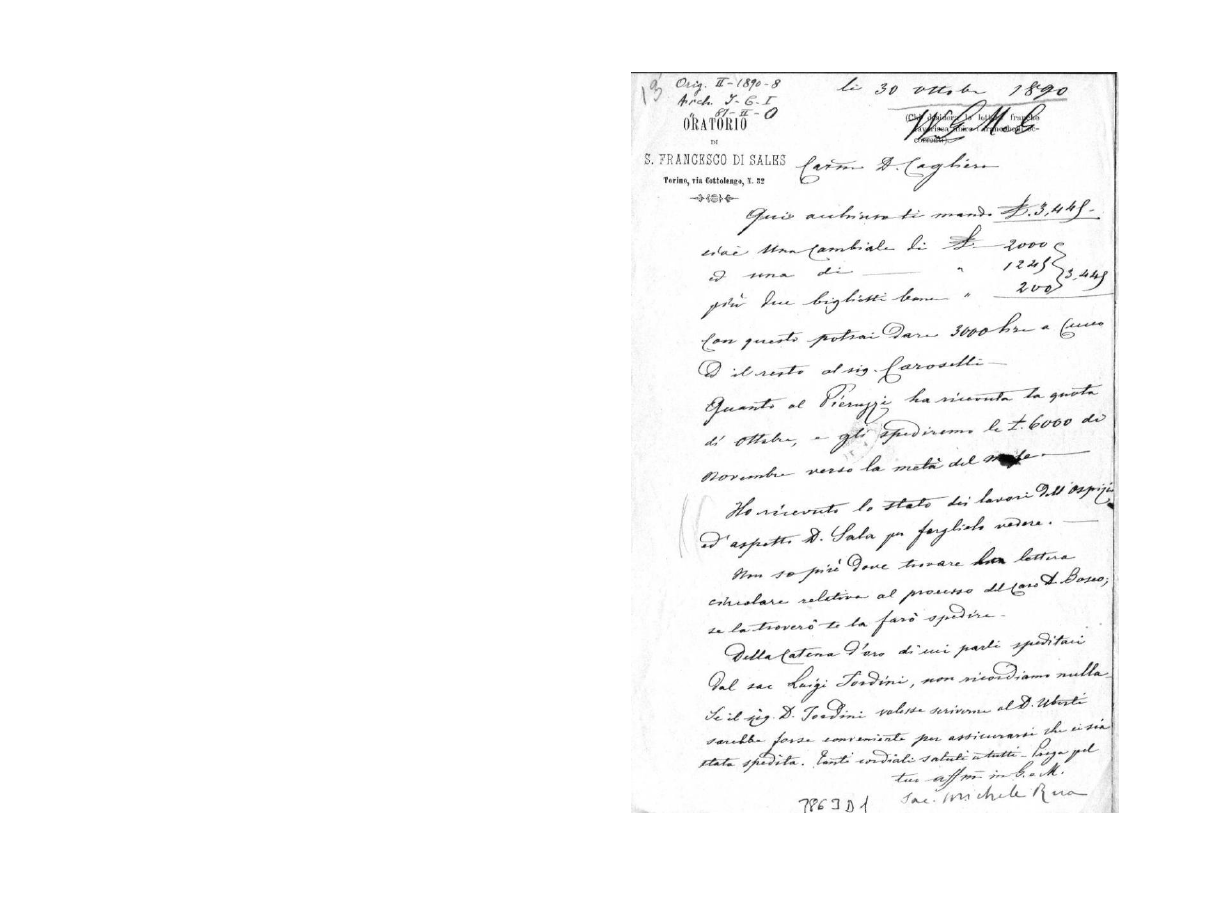 13
Orig. II-1890-8
Arch. I-6-I
87-II-O
li 30 ottobre 1890
ORATORIO
DI
S. FRANCESCO DI SALES
Torino, via Cottolengo, N. 32
(Chi desidera la lettera franca
W G M G
Carmo D. Cagliero
Qui acchiuso ti mando £. 3,445-
cioè una Cambiale di £. - 2000
ed una di — " 1245 3,445
più due biglietti banc " 200
Con questi potrai dare 3000 lire a Cucco
ed il resto al sig. Caroselli -
Quanto al Pieruzzi ha ricevuta la quota
di ottobre, e gli spediremo le £. 6000 di
novembre verso la metà del mese. —
Ho ricevuto lo stato dei lavori dell'ospizio
ed aspetto D. Sala per farglielo vedere. —
Non so più dove trovare la lettera
circolare relativa al processo del caro D. Bosco;
se la troverò te la farò spedire -
Della Catena d'oro di cui parli speditaci
dal sac Luigi Tordini, non ricordiamo nulla.
Se il sig. D. Tordini volesse scriverne al D. Uberti
sarebbe forse conveniente per assicurarsi che ci sia
stata spedita. Tanti cordiali saluti a tutti - Prega pel
tuo affmo in G. e M.
Sac. Michele Rua
3863D1